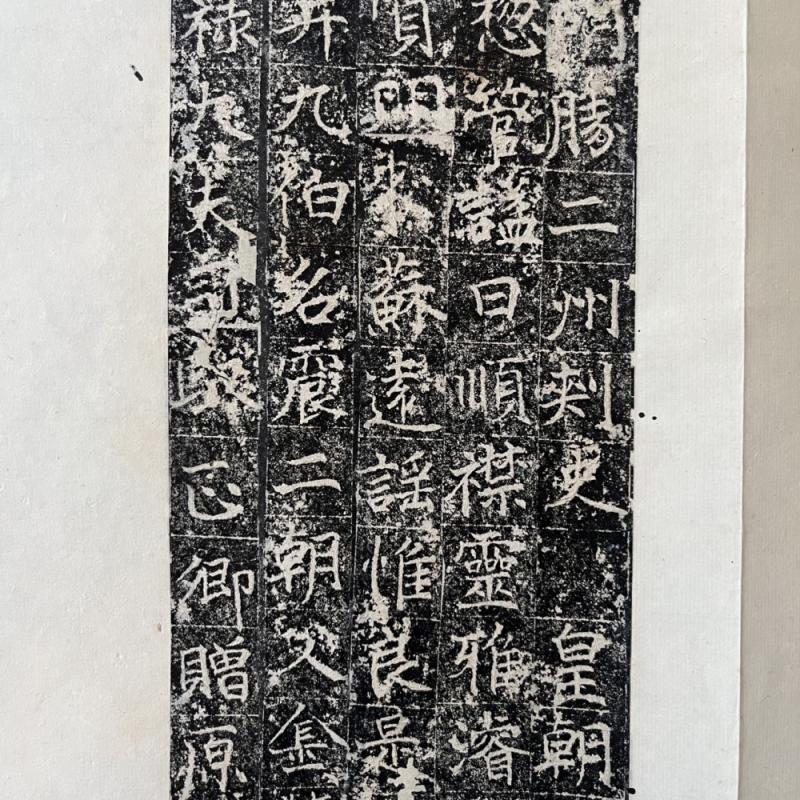 勝二州刺史 皇朝
總管謚曰順襟靈雅濬
明來蘇遠謡惟良是
九伯名震二朝父金
祿大夫司馭正卿贈原